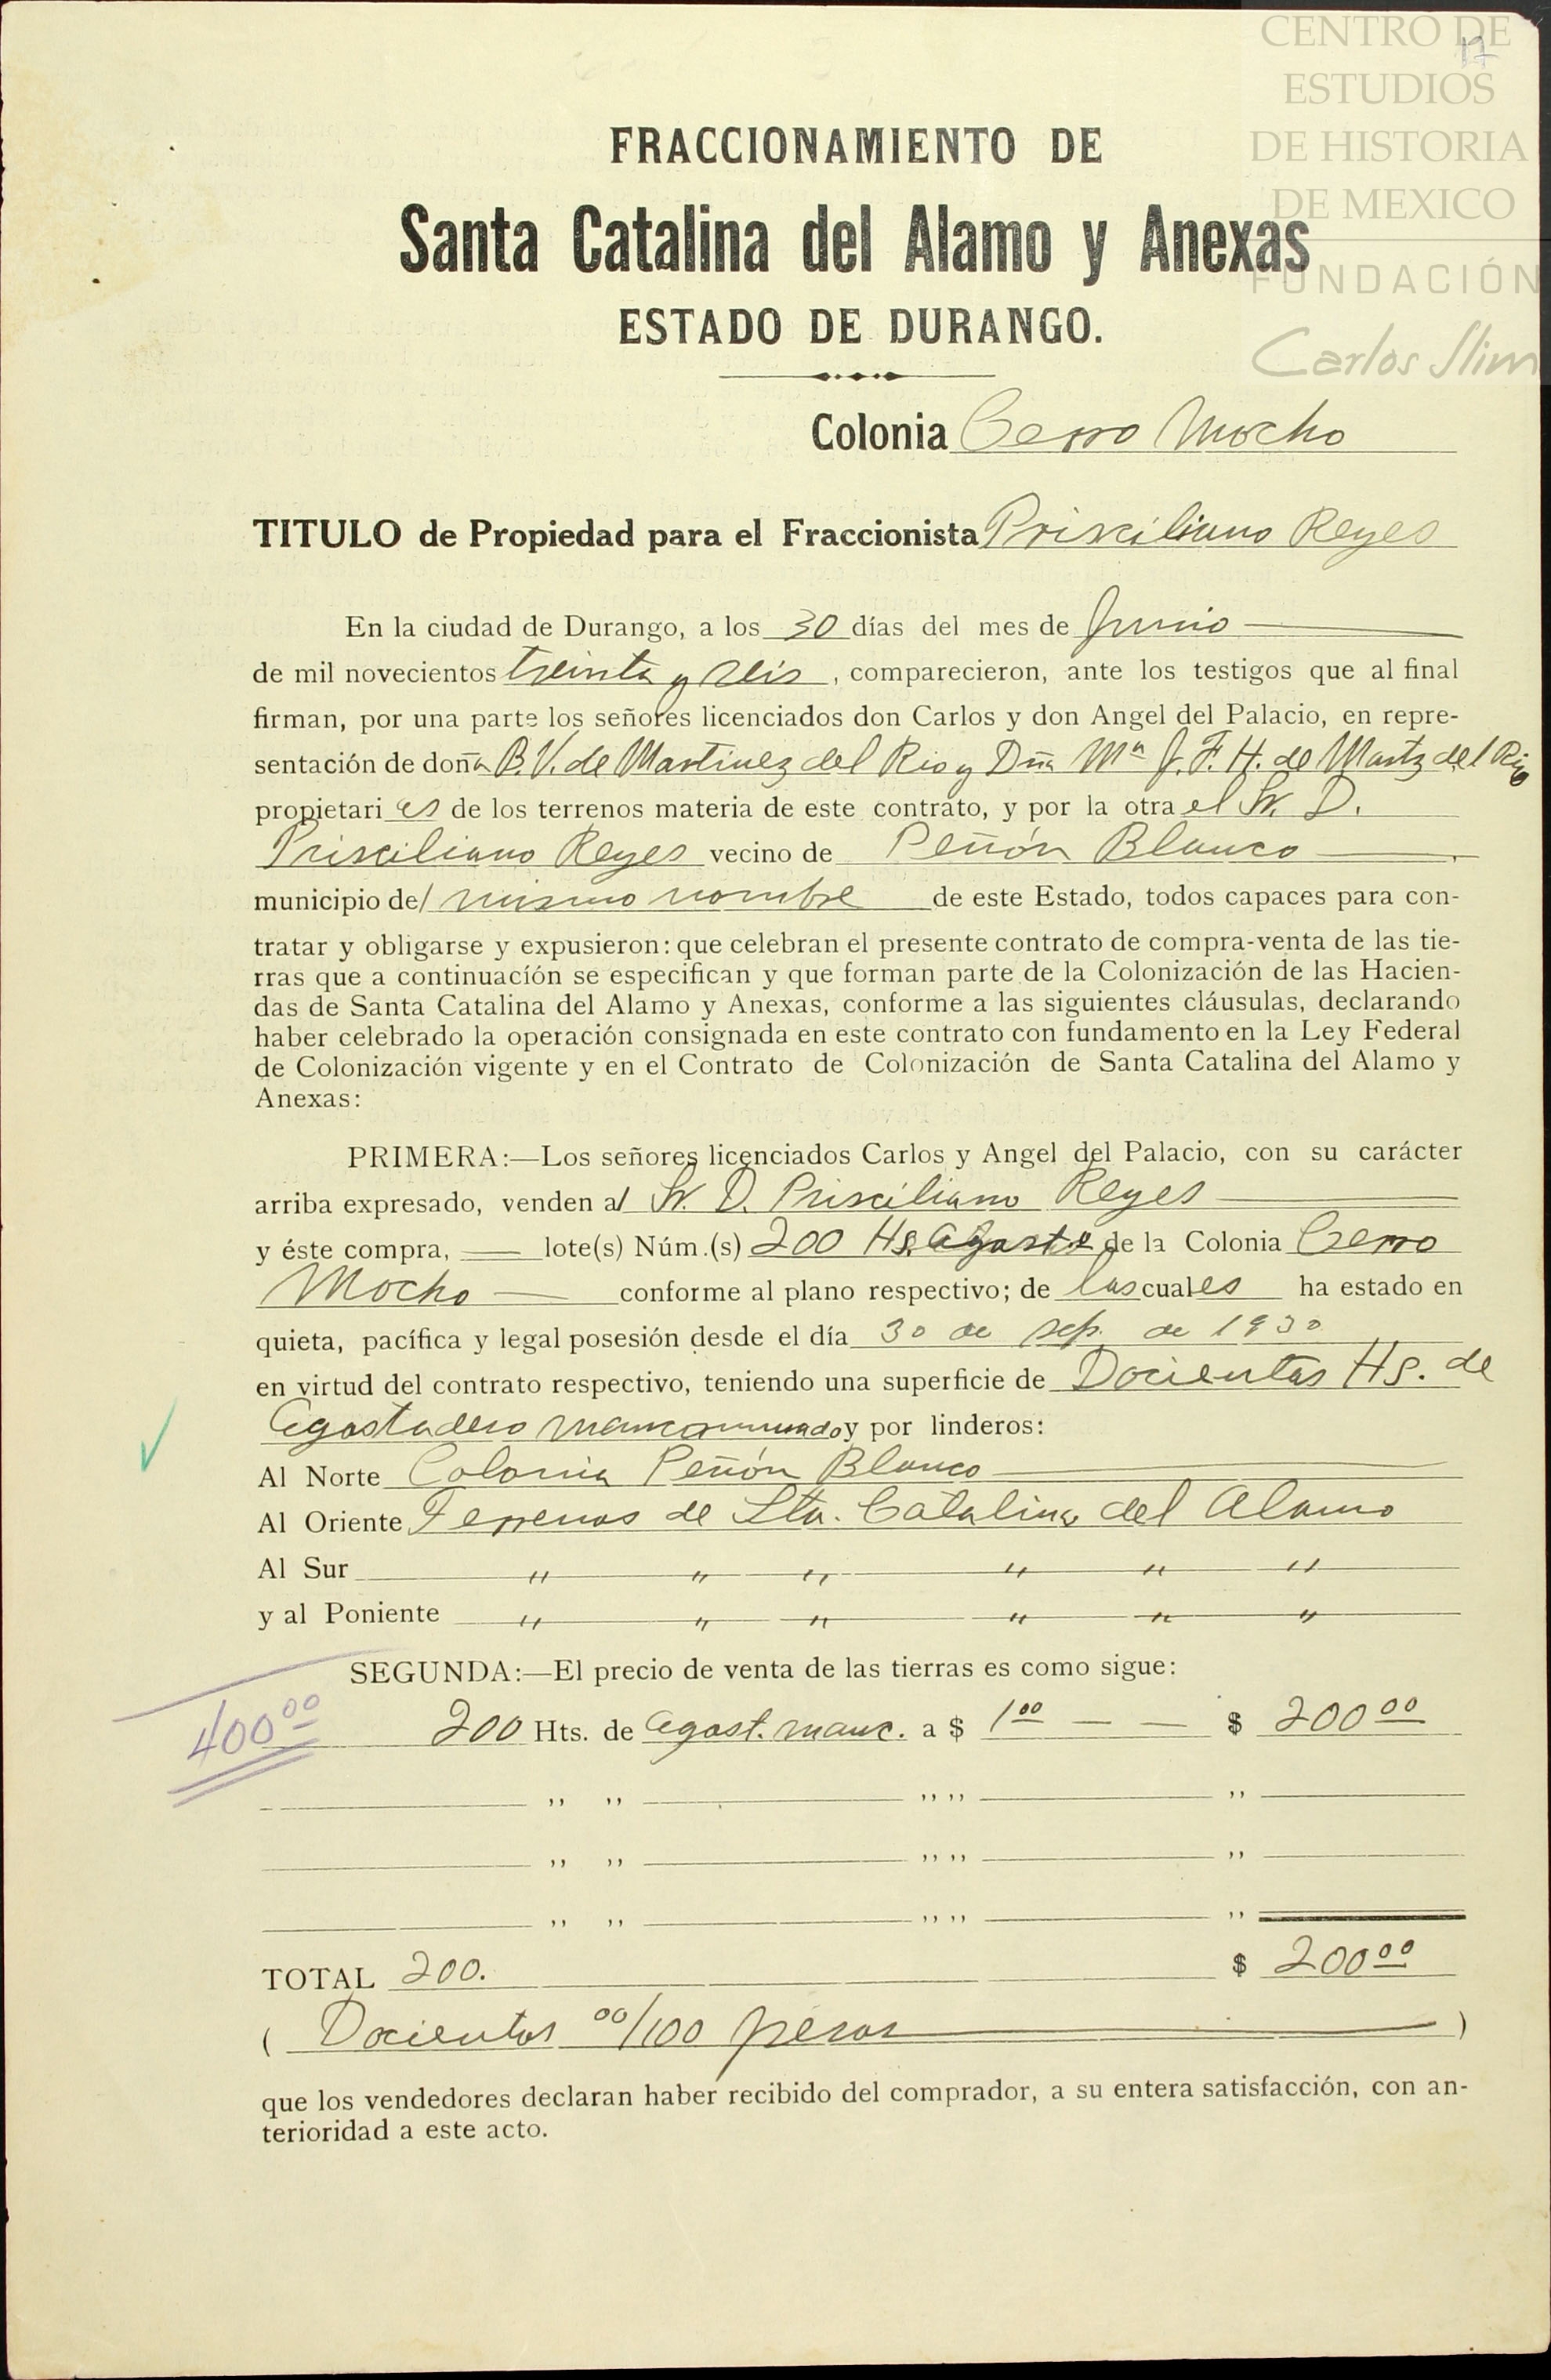 CENTRO DE
17
ESTUDIOS
DE HISTORIA
DE MEXICO
FUNDACIÓN
Carlos Slim
FRACCIONAMIENTO DE
Santa Catalina del Alamo y Anexas
ESTADO DE DURANGO.
Colonia Cerro Mocho
TITULO de Propiedad para el Fraccionista Prisciliano Reyes
En la ciudad de Durango, a los 30 días del mes de Junio
de mil novecientos treinta y seis, comparecieron, ante los testigos que al final
firman, por una parte los señores licenciados don Carlos y don Angel del Palacio, en repre-
sentación de doña B. V. de Martinez del Rio y Dña Mª J. F. H. de Martz del Rio
propietari es de los terrenos materia de este contrato, y por la otra el Sr. D.
Prisciliano Reyes vecino de Peñón Blanco
municipio del mismo nombre de este Estado, todos capaces para con-
tratar y obligarse y expusieron: que celebran el presente contrato de compra-venta de las tie-
rras que a continuación se especifican y que forman parte de la Colonización de las Hacien-
das de Santa Catalina del Alamo y Anexas, conforme a las siguientes cláusulas, declarando
haber celebrado la operación consignada en este contrato con fundamento en la Ley Federal
de Colonización vigente y en el Contrato de Colonización de Santa Catalina del Alamo y
Anexas:
PRIMERA:—Los señores licenciados Carlos y Angel del Palacio, con su carácter
arriba expresado, venden al Sr. D. Prisciliano Reyes
y éste compra, — lote(s) Núm.(s) 200 Hs. Agost. de la Colonia Cerro
Mocho — conforme al plano respectivo; de las cuales ha estado en
quieta, pacífica y legal posesión desde el día 30 de sep. de 1930
en virtud del contrato respectivo, teniendo una superficie de Docientas Hs. de
Agostadero mancomunado y por linderos:
Al Norte Colonia Peñón Blanco
Al Oriente Terrenos de Sta. Catalina del Alamo
Al Sur " " " " " "
y al Poniente " " " " " "
SEGUNDA:—El precio de venta de las tierras es como sigue:
400 00
200 Hts. de Agost. manc. a $ 1 00 — — $ 200 00
,, ,, ,, ,, ,,
,, ,, ,, ,, ,,
,, ,, ,, ,, ,,
TOTAL 200. $ 200 00
( Docientos 00/100 pesos )
que los vendedores declaran haber recibido del comprador, a su entera satisfacción, con an-
terioridad a este acto.